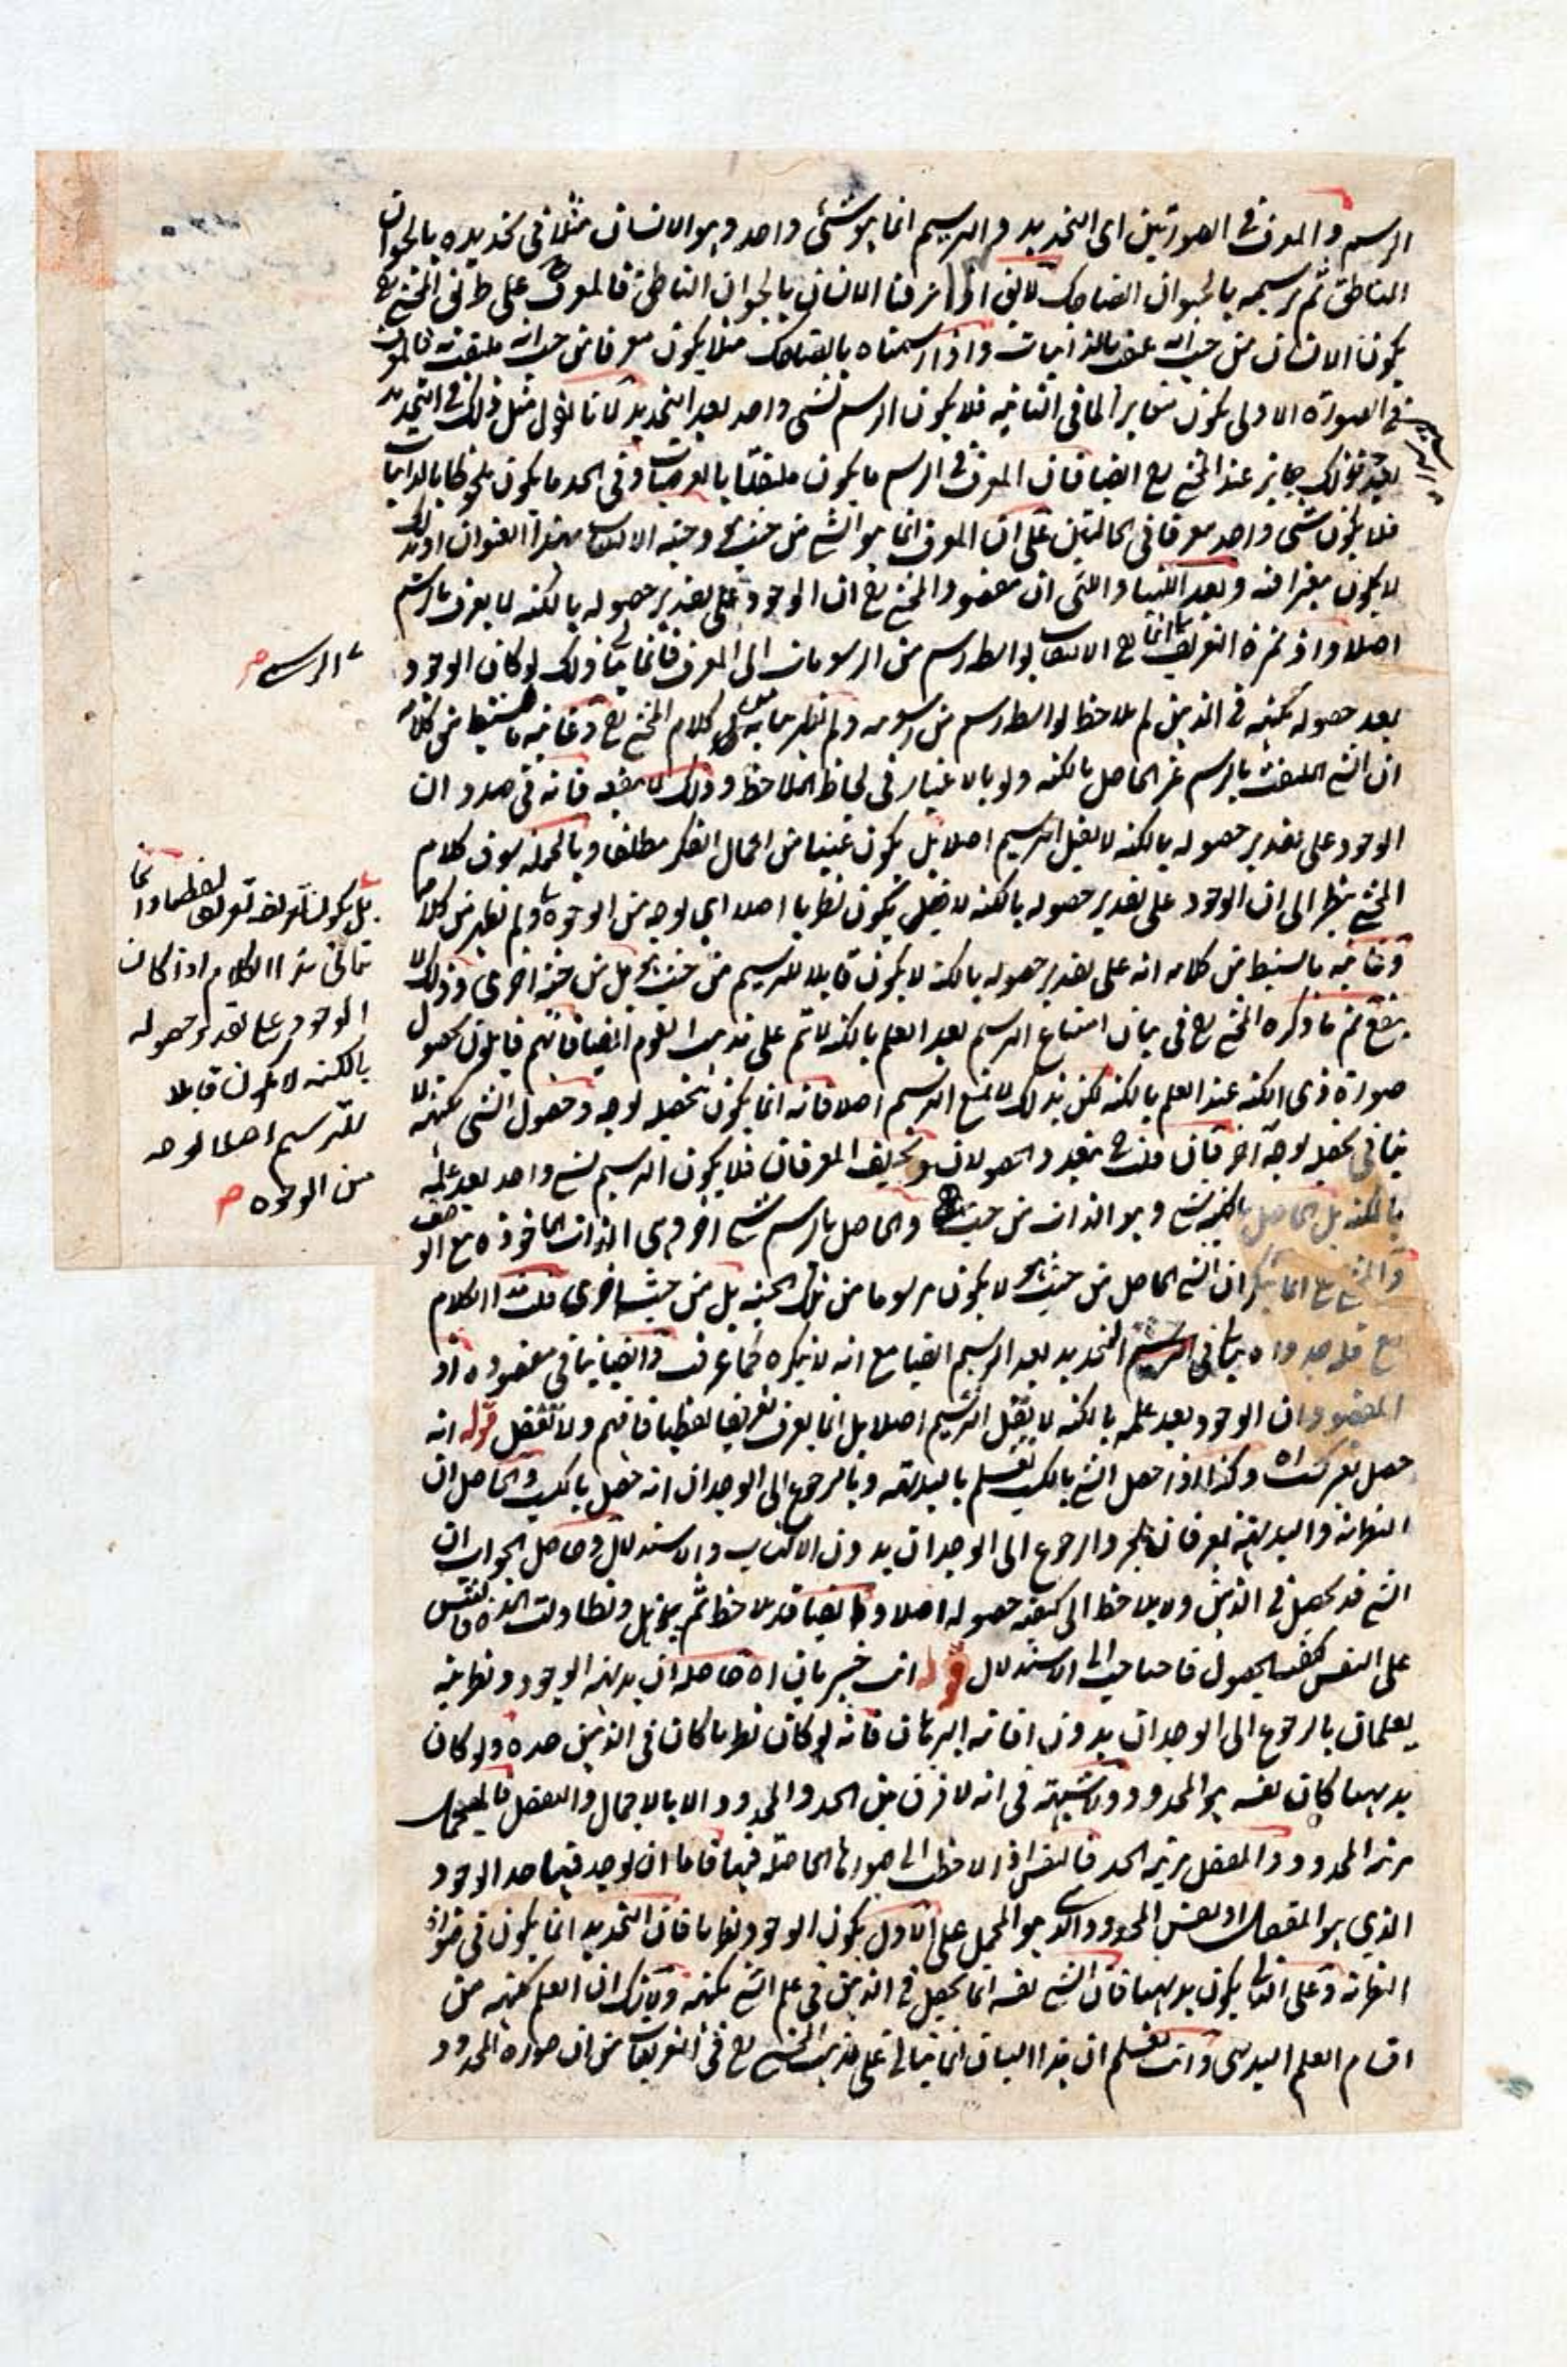 الرسم والمعرف في الصورتين اى التحديد والترسيم انما هو شئ واحد وهو الانسان مثلا في تحديده بالحيوان
الناطق ثم ترسيمه بالحيوان الضاحك لا يق اذا عرفنا الانسان بالحيوان الناطق فالمعرف على طرق المحشي
يكون الانسان من حيث انه بالذاتيات واذا رسمناه بالضاحك مثلا يكون معرفا من حيث انه فالمعرف
في الصورة الاولى يكون مغايرا لما في الثانية فلا يكون الرسم لشئ واحد بعد التحديد لانا نقول مثل ذلك في التحديد
جايز عند المحشي ايضا فان المعرف في الرسم ما يكون ملتفتا بالعرضيات وفي الحد ما يكون ملحوظا بالذاتيات
فلا يكون شئ واحد معرفا في الحالتين على ان المعرف انما هو الشئ من حيث هو وحيثية هذا العنوان
لا يكون معتبرا فيه وبعد اللتيا والتي ان مقصود المحشي ان الوجود على تقدير حصوله بالكنه لا يعرف بالرسم
اصلا واذ ثمرة التعريف انما بواسطة رسم من الرسومات الى المعرف فانما ذلك لو كان الوجود
بعد حصوله بكنهه في الذهن لم يلاحظ بواسطة رسم من رسومه ولم يظهر كلام المحشي وغاية ما يستنبط من كلامه
ان الشئ الملتفت بالرسم غير الحاصل بالكنه ولو بالاعتبار في لحاظ الملاحظ وذلك لا ينفعه فانه في صدد ان
الوجود على تقدير حصوله بالكنه لا يقبل الترسيم اصلا بل يكون غنيا من اعمال الفكر مطلقا وبالجملة سوق كلام
المحشي ينظر الى ان الوجود على تقدير حصوله بالكنه لا يكون نظريا اصلا اي بوجه من الوجوه ولم يظهر من كلامه
وغاية ما يستنبط من كلامه انه على تقدير حصوله بالكنه لا يكون قابلا للترسيم من حيث هو بل من حيثية اخرى وذلك لا
ينفع ثم ما ذكره المحشي في بيان امتناع الترسيم بعد العلم بالكنه لا يتم على مذهب القوم ايضا فانهم قايلون بحصول
صورة ذى الكنه عند العلم بالكنه لكن بذلك لا يمتنع الترسيم اصلا فانه انما يكون لتحصيله بوجه وحصول الشئ بكنهه لا
ينافي تحصيله بوجه آخر فان قلت يتعدد الحصولان المعرفان فلا يكون الترسيم لشئ واحد بعد علمه
بالكنه بل الحاصل بالكنه شئ وهو الذات من حيث والحاصل بالرسم شئ آخر وهى الذات الماخوذة مع الوصف
والمحشي انما ينكر ان الشئ الحاصل من حيث هو لا يكون مرسوما من تلك الحيثية بل من حيثية اخرى قلت هذا الكلام
مع قلة جدواه ينافي التحديد بعد الترسيم ايضا مع انه لا ينكره كما عرفت وايضا ينافي مقصوده اذ
المقصود ان الوجود بعد علمه بالكنه لا يقبل الترسيم اصلا بل انما يعرف تعريفا لفظيا فافهم ولا تغفل قوله انه
حصل بغير كسب اه وكذا اذا حصل الشئ بالكسب نعلم بالبديهة وبالرجوع الى الوجدان انه حصل بالكسب والحاصل ان
النظرية والبديهية تعرفان بمجرد الرجوع الى الوجدان بدون الاكتساب والاستدلال وحاصل الجواب ان
الشئ قد يحصل في الذهن ولا يلاحظ الى كيفية حصوله اصلا وايضا قد يلاحظ ثم يذهل وتطاولت المدة فالتبس
على النفس كيفية الحصول فاحتاجت الى الاستدلال قوله انت خبير بان اه حاصله ان بديهة الوجود ونظريته
يعلمان بالرجوع الى الوجدان بدون اقامة البرهان فانه لو كان نظريا كان في الذهن حده ولو كان
بديهيا كان نفسه هو المحدود ولا شبهة في انه لا فرق بين الحد والمحدود الا بالاجمال والتفصيل فالمجمل
مرتبة المحدود والمفصل مرتبة الحد فالنفس اذا لاحظت الى صورتها الحاصلة فيها فاما ان يوجد فيها حد الوجود
الذي هو المفصل او نفس المحدود الذي هو المجمل على الاول يكون الوجود نظريا فان التحديد انما يكون في خواص
النظرية وعلى الثاني يكون بديهيا فان الشئ نفسه انما يحصل في الذهن في علم الشئ بكنهه ولا شك ان العلم بكنهه من
اقسام العلم البديهي وانت تعلم ان هذا البيان انما يتأتى على مذهب المحشي في التعريفات من ان صورة المحدود
الرسم
بل يكون تعريفه تعريفا لفظيا وانما
يتأتى هذا الكلام اذا كان
الوجود على تقدير حصوله
بالكنه لا يكون قابلا
للترسيم اصلا بوجه
من الوجوه